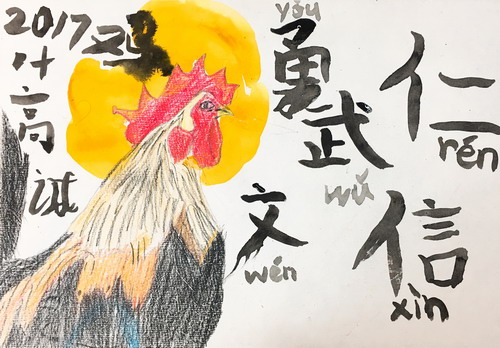 2017 鸡
叶高诚
yǒu
勇
武
wǔ
文
wén
仁
rén
信
xìn